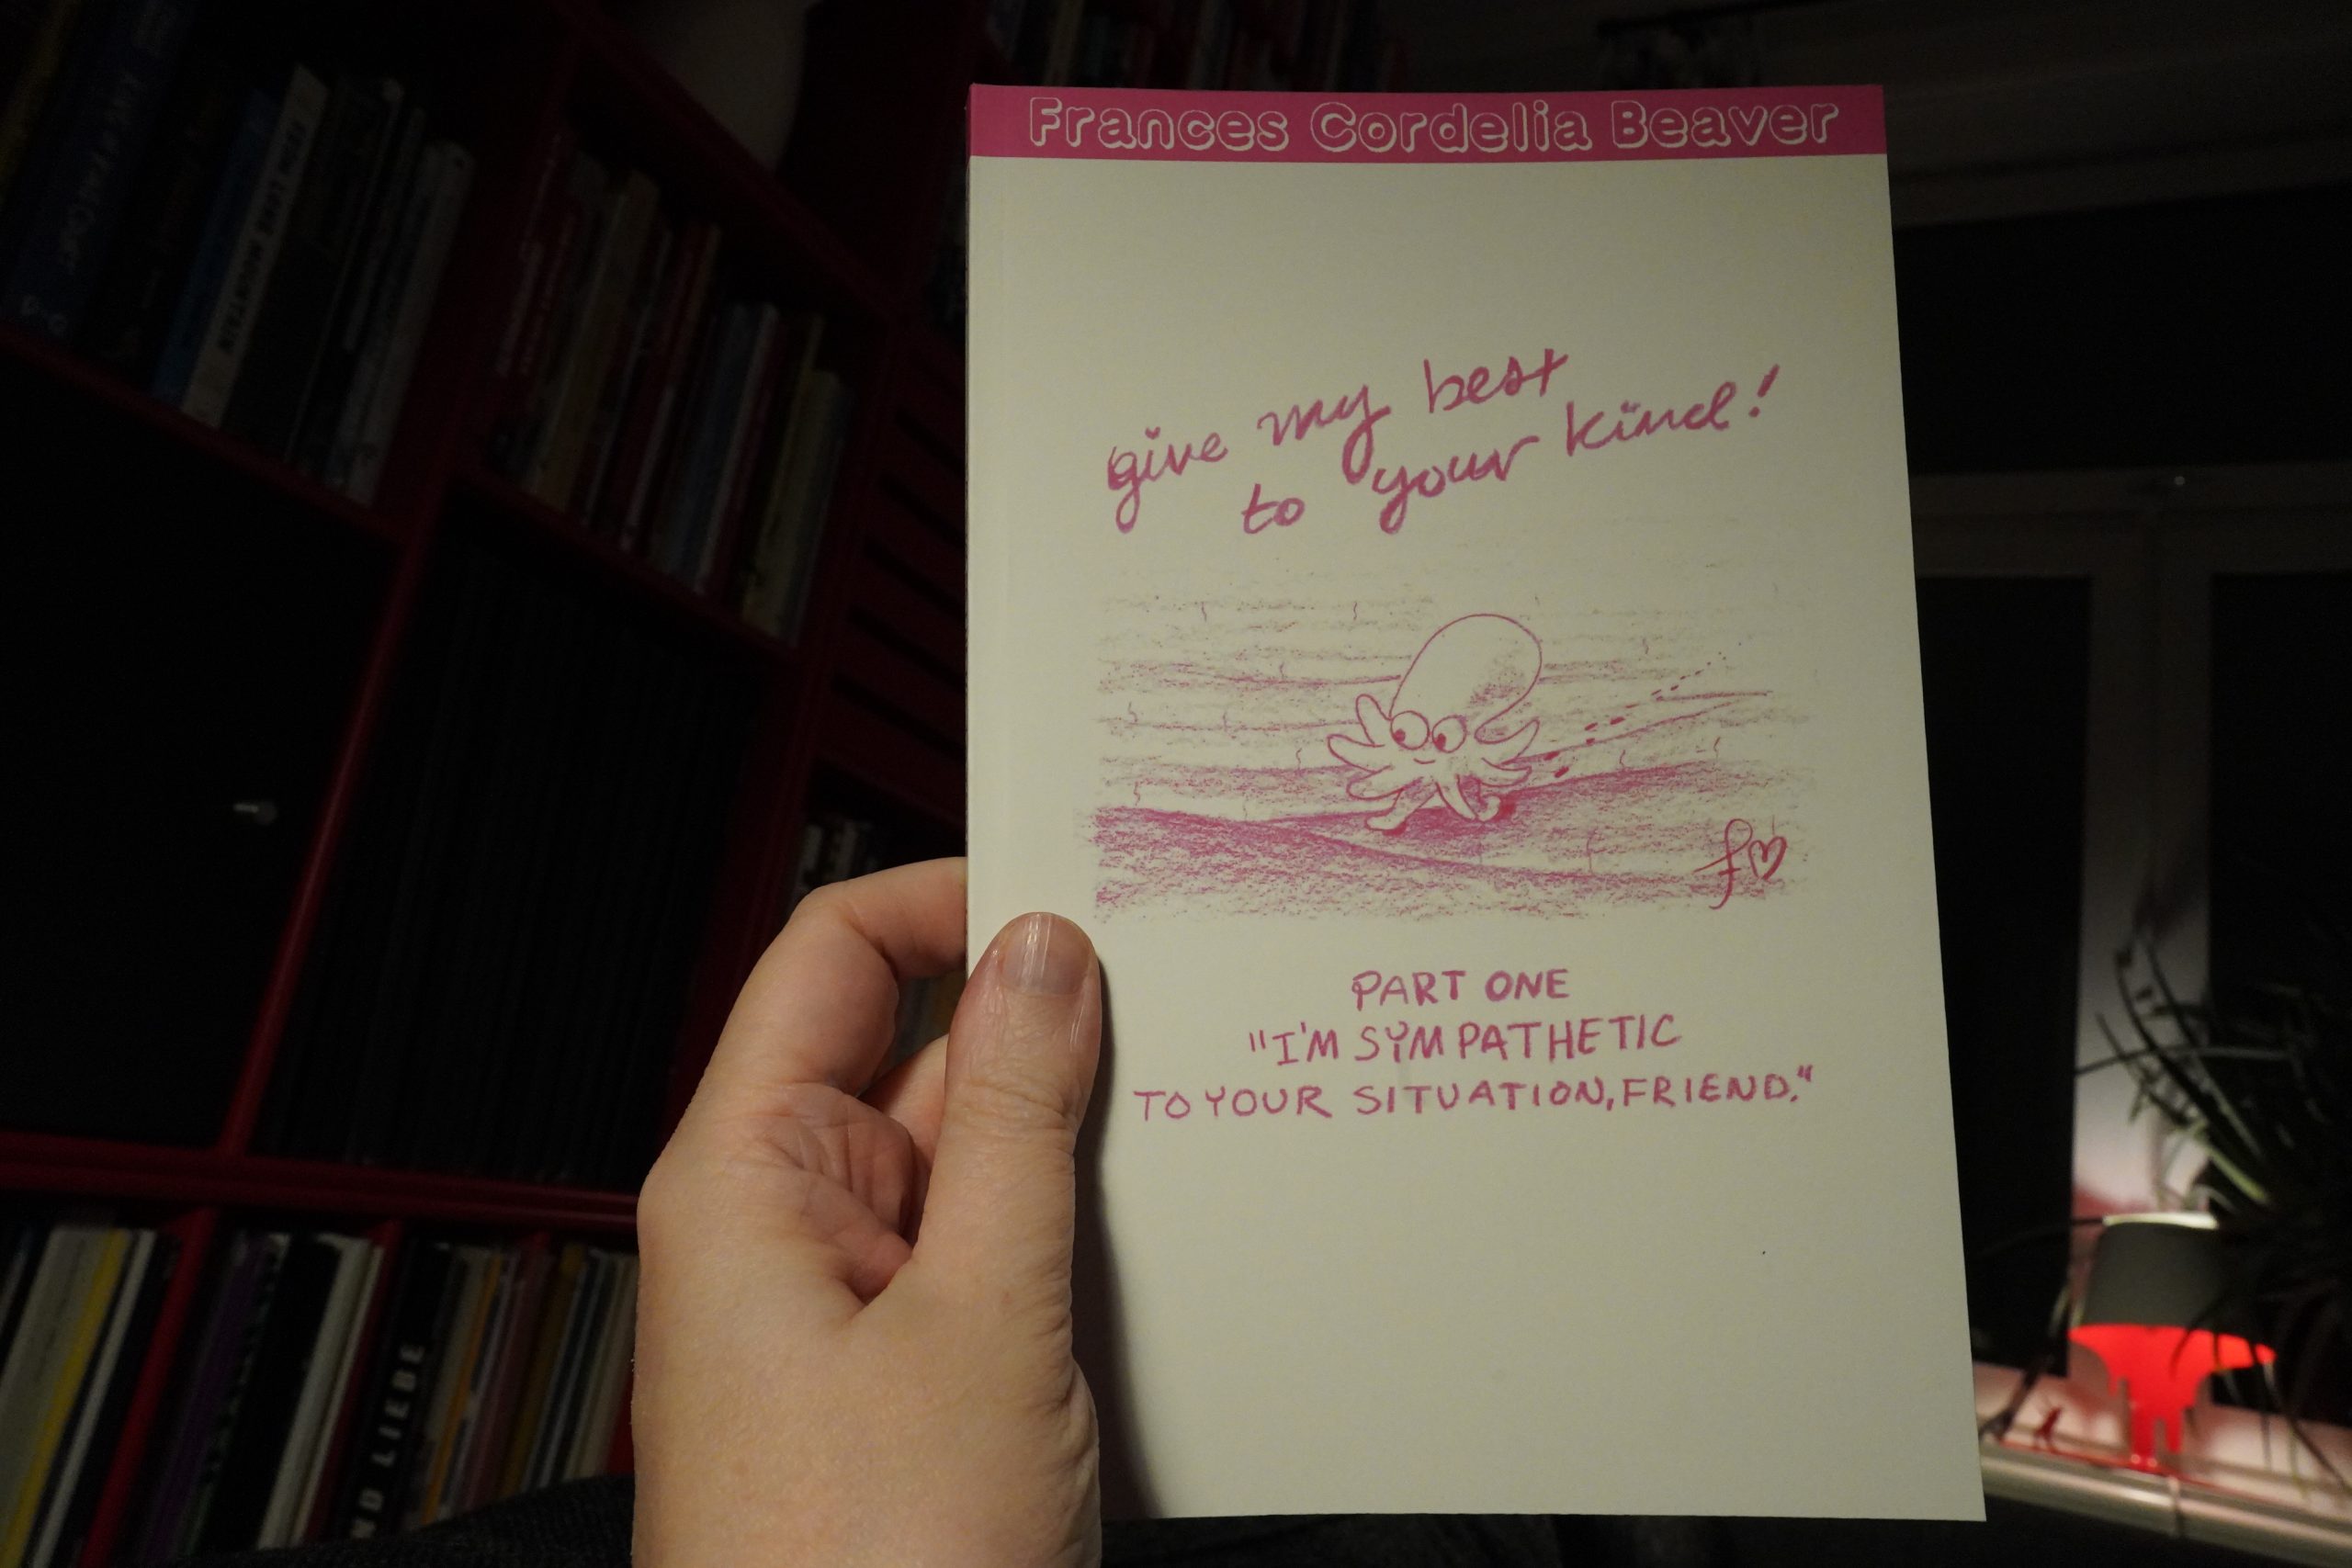 Frances Cordelia Beaver
give my best
to your kind!
f
PART ONE
"I'M SYMPATHETIC
TO YOUR SITUATION, FRIEND."
ND LIEBE